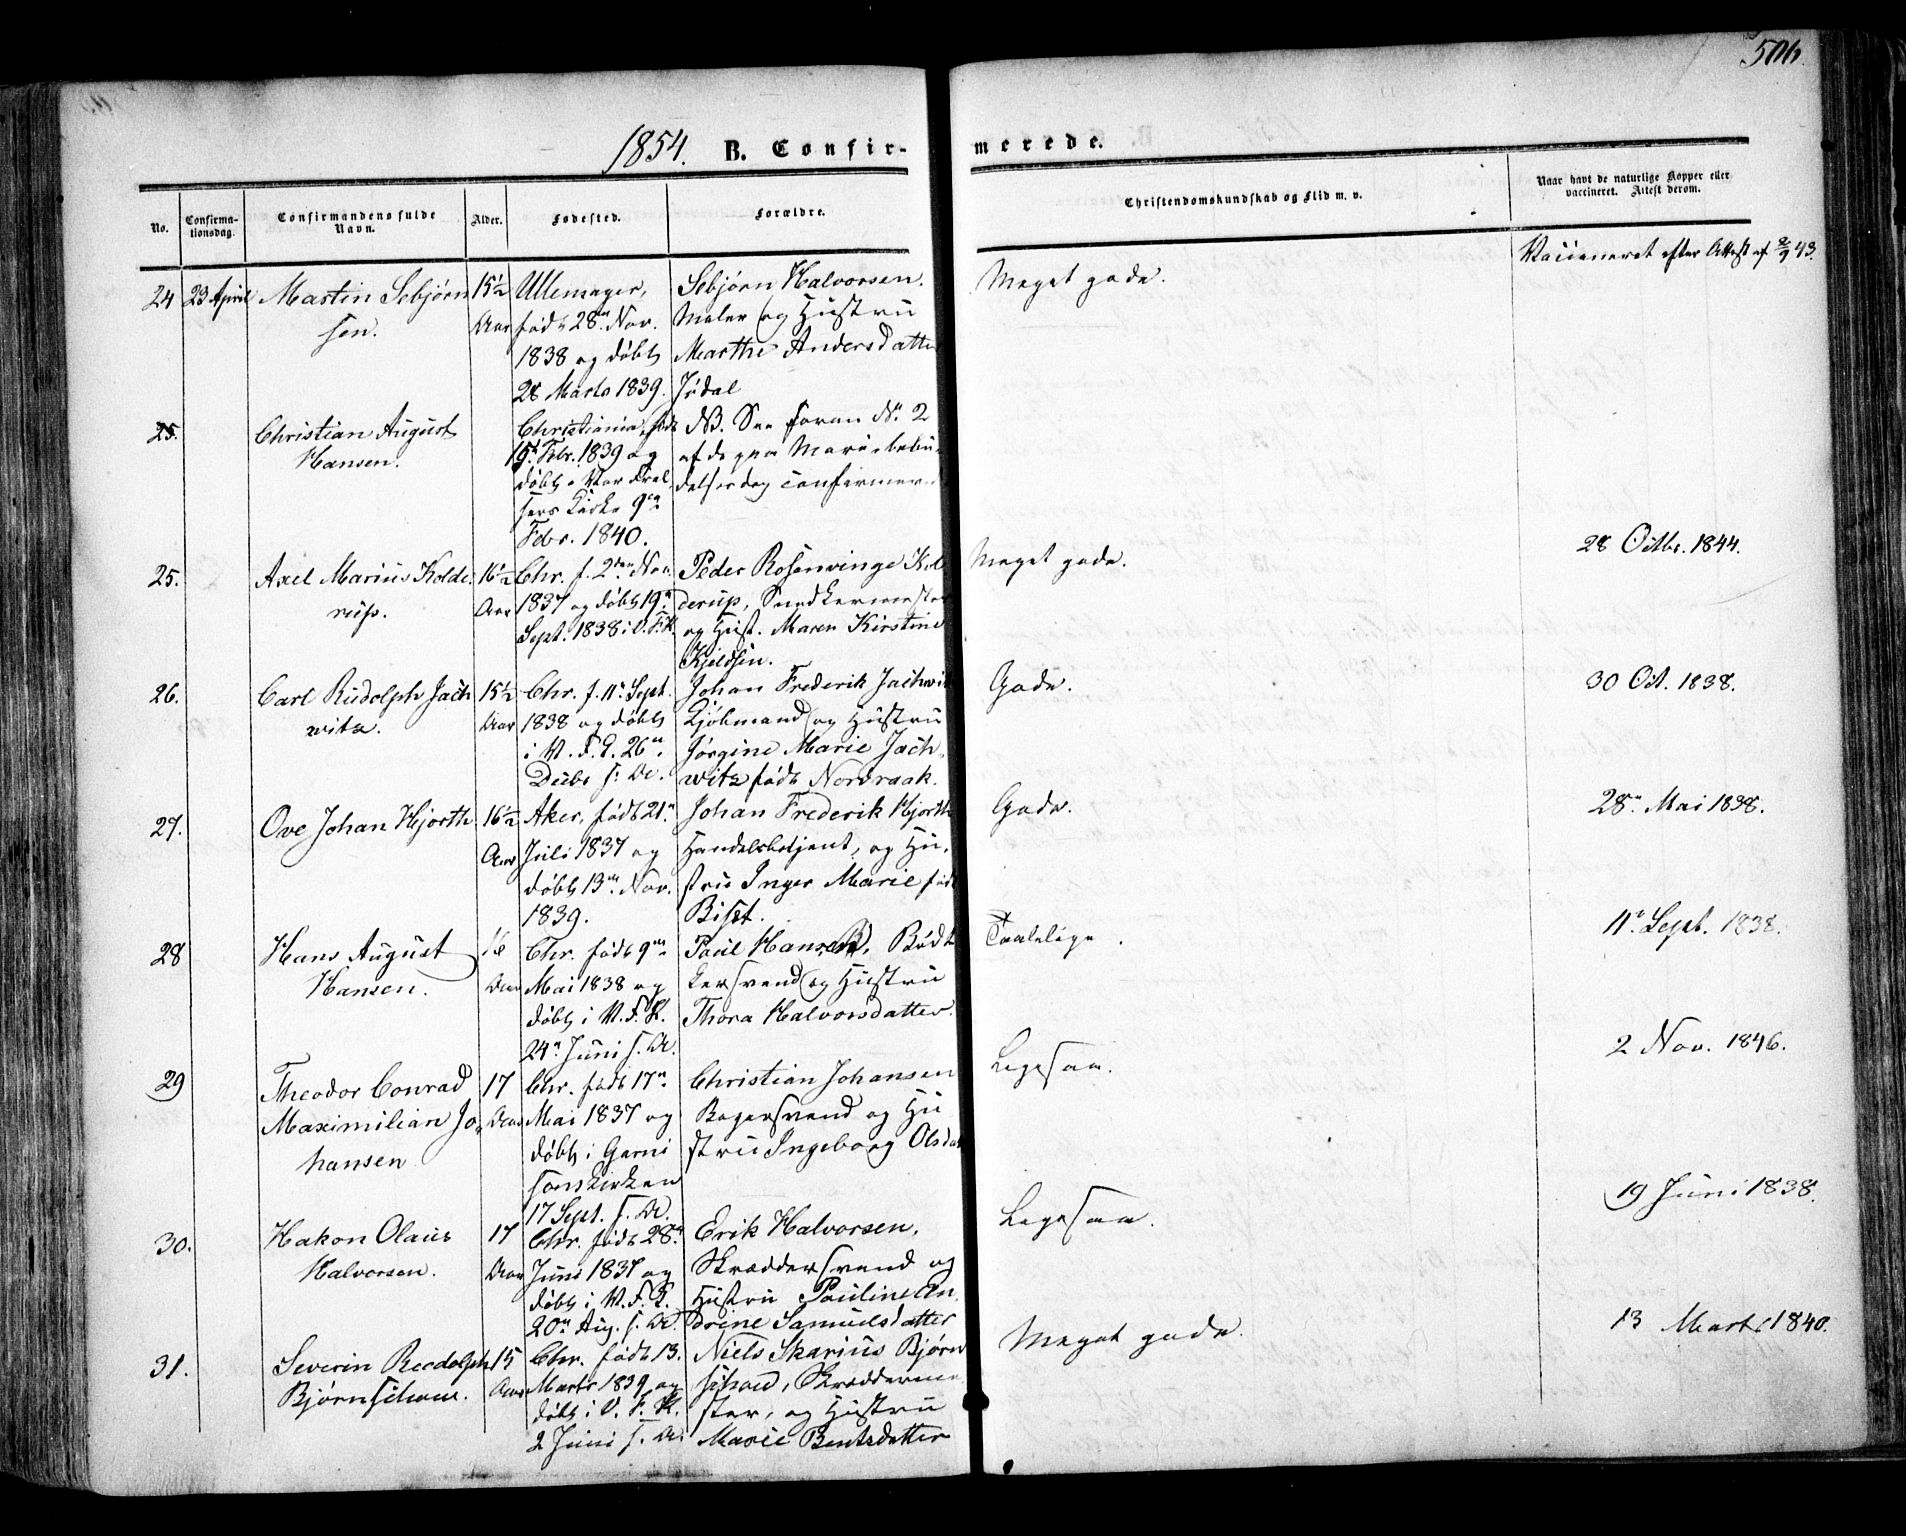 506
1854. B. Confir- merede.
No. Confirma-tionsdag. Confirmandens fulde Navn. Alder. Fødested. Forældre. Christendomskundskab og Flid m. v. Naar havt de naturlige Kopper eller vaccineret. Attest derom.
24 23 April Martin Sebjørn 15½ Ullensager, Sebjørn Halvorsen. Meget gode. Vaccineret efter Attest af 2/9 43.
sen. Aar født 28de Nov. Maler og Hustru
1838 og døbt Marthe Andersdatter
28 Marts 1839. Jødal
25. Christian August Christiania, født NB. See foran No. 2
Hansen. 15de Febr. 1839 og af de paa Mariæbebu-
døbt i Vor Frel- delsesdag confirmerede
sers Kirke 9de
Febr. 1840.
25. Axel Marius Kolde- 16½ Chr. f. 2den Nov. Peder Rosenvinge Kol- Meget gode. 28 Octbr. 1844.
rup. Aar 1837 og døbt 19de derup, Snedkermester
Sept. 1838 i V. F. K. og Hust. Maren Kirstine
Kjeldsen.
26. Carl Rudolph Jach 15½ Chr. f. 11te Sept. Johan Frederik Jachwitz Gode. 30 Oct. 1838.
witz. Aar 1838 og døbt Kjøbmand og Hustru
i V. F. K. 26de Jørgine Marie Jach-
Decbr. s. A. witz født Nordraak.
27. Ove Johan Hjorth 16½ Aker, født 21de Johan Frederik Hjorth Gode. 28de Mai 1838.
Aar Juli 1837 og Handelsbetjent, og Hu-
døbt 13de Nov. stru Inger Marie født
1839.
28 Hans August 16 Chr. født 9de Paul Hansen, Bødk Taalelige. 11te Sept. 1838.
Hansen. Aar Mai 1838 og kersvend og Hustru
døbt i V. F. K. Thora Halvorsdatter.
24de Juni s. A.
29 Theodor Conrad 17 Chr. født 17de Christian Johansen Ligesaa. 2 Nov. 1846.
Maximilian Jo- Aar Mai 1837 og Bagersvend og Hu
hansen døbt i Garni stru Ingeborg Olsdat
sonskirken
17 Sept. s. A.
30. Hakon Olaus 17 Chr. født 28de Erik Halvorsen, Ligesaa. 19 Juni 1838.
Halvorsen. Aar Juni 1837 og Skræddersvend og
døbt i V. F. K. Hustru Pauline An-
20de Aug. s. A. drine Samuelsdatter
31. Severin Rudolph 15 Chr. født 13. Niels Skarius Bjørn Meget gode. 13 Marts 1840.
Bjørnschou. Aar Marts 1839 og schou, Skrædderme
døbt i V. F. K. ster, og Hustru
2 Juni s. A. Marie Bentsdatter